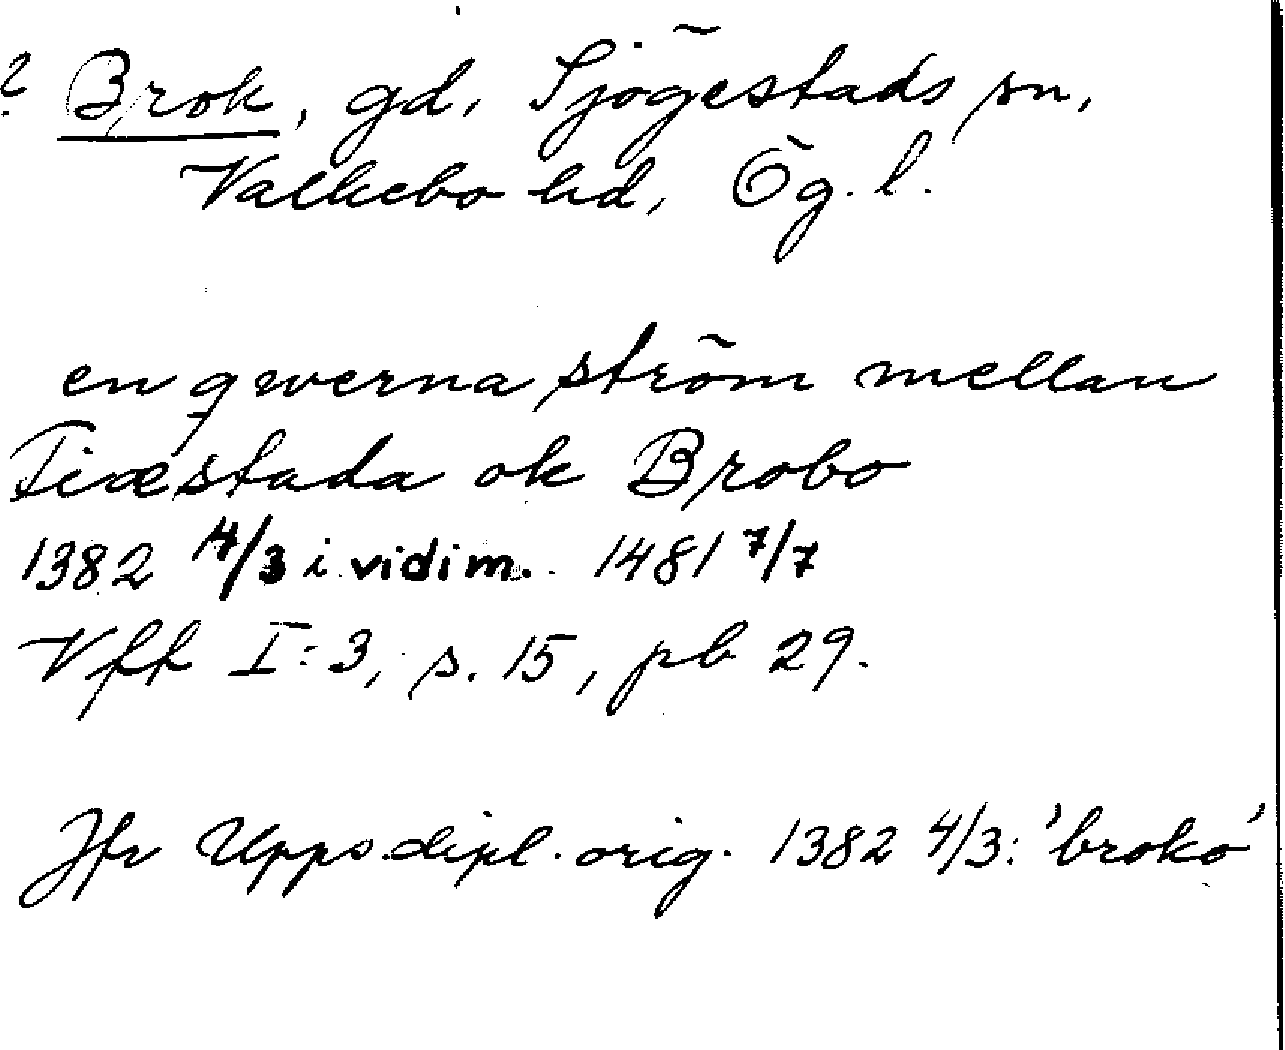 ? Brok, gd, Sjögestads sn,
Valkebo hd, Ög. l.
en qwerna ström mellan
Fiæstada ok Brobo
1382 4/3 i vidim. 1481 7/7
Vff I:3, s. 15, pb 29.
Jfr Upps.dipl. orig. 1382 4/3: 'broko'